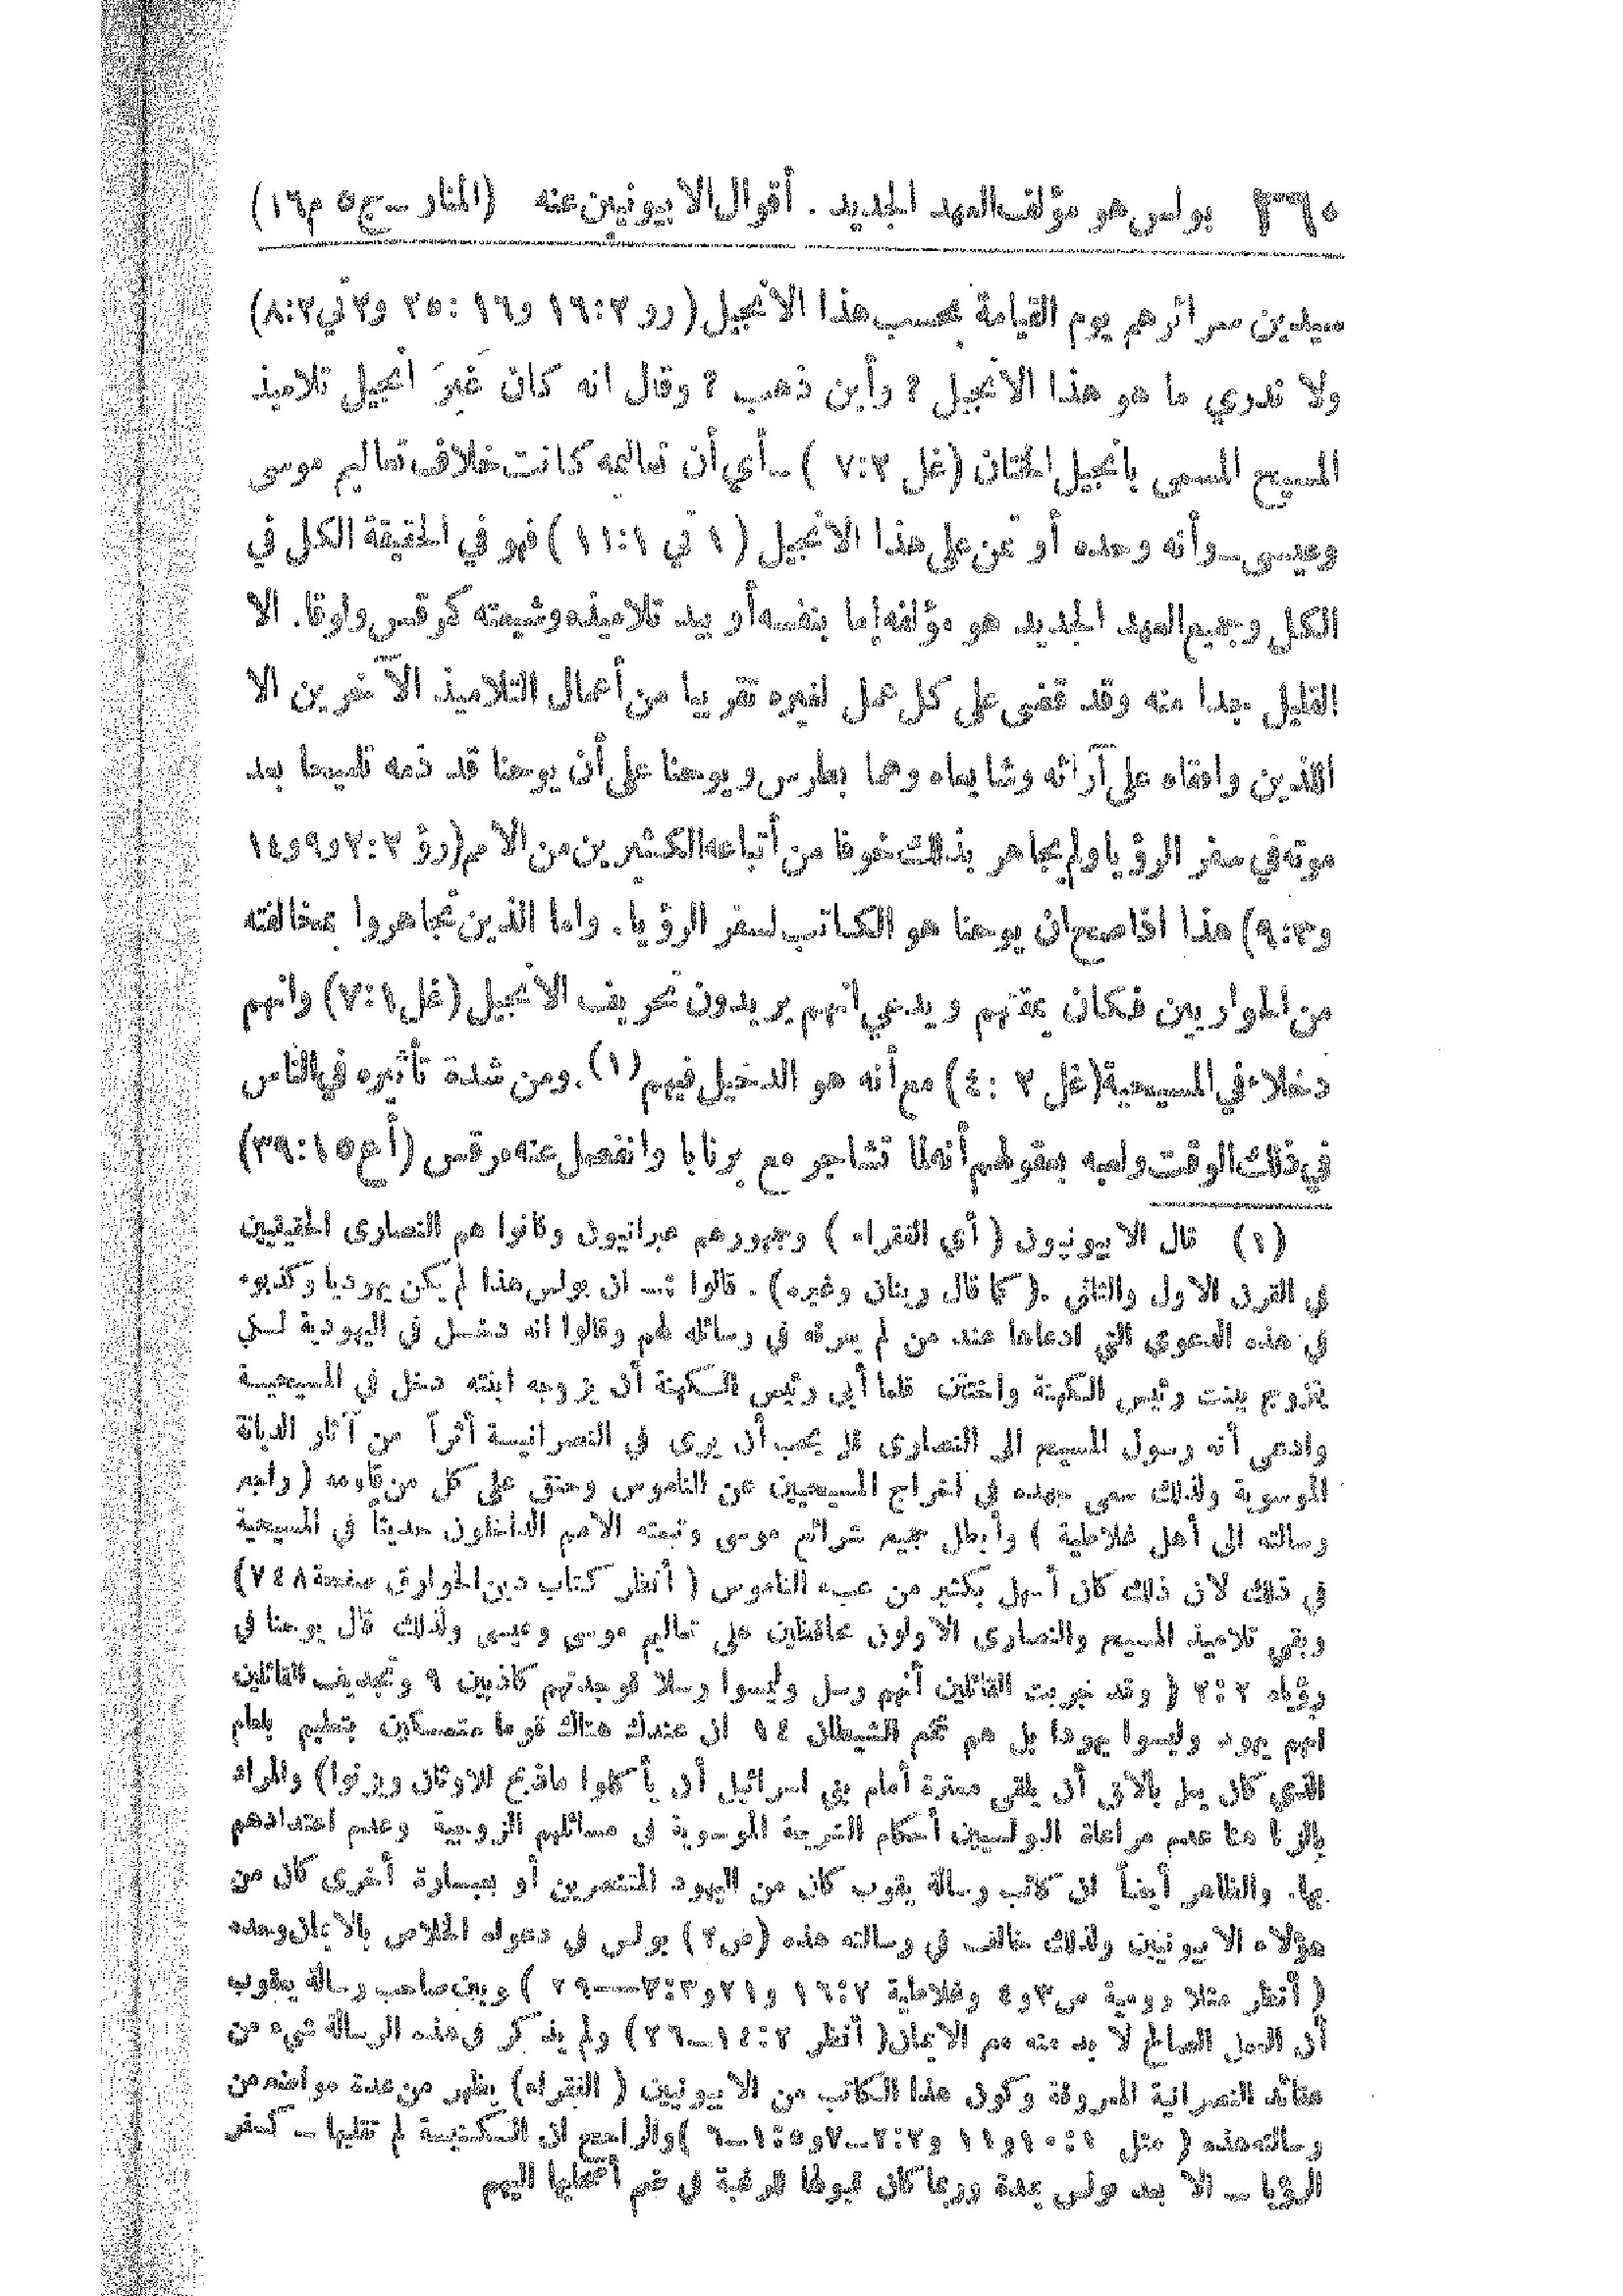 ٣٦٠ بولس هو مؤلف العهد الجديد . أقوال الابيونيين عنه (المنار ــ ج ٥ م ١٦)
سيدين سرائرهم يوم القيامة بحسب هذا الانجيل (رو ٢:١٦ و١٦ :٢٥ و٢ تي ٢:٨)
ولا ندري ما هو هذا الانجيل ؟ وأين ذهب ؟ وقال انه كان غيرَ انجيل تلاميذ
المسيح المسمى بانجيل الختان (غل ٢:٧ ) ــ أي أن تعاليمه كانت خلاف تعاليم موسى
وعيسى ــ وأنه وحده أوتمن على هذا الانجيل (١ تي ١:١١ ) فهو في الحقيقة الكل في
الكل وجميع العهد الجديد هو مؤلفه إما بنفسه أو بيد تلاميذه وشيعته كمرقس ولوقا. الا
القليل جدا منه وقد قضى على كل عمل لغيره تقريبا من أعمال التلاميذ الآخرين الا
اللذين وافقاه على آرائه وشايعاه وهما بطرس ويوحنا على أن يوحنا قد ذمه تلميحا بعد
موته في سفر الرؤيا ولم يجاهر بذلك خوفا من أتباعه الكثيرين من الامم (رؤ ٢:٢ و٩ و١٤
و٣:٩) هذا اذا صح ان يوحنا هو الكاتب لسفر الرؤيا. واما الذين تجاهروا بمخالفته
من الحواريين فكان يمقتهم ويدعي انهم يريدون تحريف الانجيل (غل ١:٧) وانهم
دخلاء في المسيحية (غل ٢ :٤) مع أنه هو الدخيل فيهم (١) . ومن شدة تأثيره في الناس
في ذلك الوقت ولعبه بعقولهم أنه لما تشاجر مع برنابا وانفصل عنه مرقس (أع ١٥:٣٩)
(١) قال الابيونيون ( أي الفقراء ) وجمهورهم عبرانيون وكانوا هم النصارى الحقيقيين
في القرن الاول والثاني . ( كما قال رينان وغيره) . قالوا :ــ ان بولس هذا لم يكن يهوديا وكذبوه
في هذه الدعوى التي ادعاها عند من لم يعرفه في رسائله لهم وقالوا انه دخل في اليهودية لكي
يتزوج بنت رئيس الكهنة واختتن فلما أبى رئيس الكهنة أن يزوجه ابنته دخل في المسيحية
وادعى أنه رسول المسيح الى النصارى فلم يحب أن يرى في النصرانية أثراً من آثار الديانة
الموسوية ولذلك سعى جهده في اخراج المسيحيين عن الناموس وحنق على كل من قاومه ( راجع
رسالته الى أهل غلاطية ) وأبطل جميع شرائع موسى وتبعته الامم الداخلون حديثاً في المسيحية
في ذلك لان ذلك كان أسهل بكثير من عبء الناموس ( أنظر كتاب دين الخوارق صفحة ٧٤٨)
وبقي تلاميذ المسيح والنصارى الاولون محافظين على تعاليم موسى وعيسى ولذلك قال يوحنا في
رؤياه ٢:٢ ( وقد جربت القائلين أنهم رسل وليسوا رسلا فوجدتهم كاذبين ٩ وتجديف القائلين
انهم يهود وليسوا يهودا بل هم مجمع الشيطان ١٤ ان عندك هناك قوما متمسكين بتعليم بلعام
الذي كان يعلم بالاق أن يلقي معثرة أمام بني اسرائيل أن يأكلوا ما ذبح للاوثان ويزنوا) والمراد
بالزنا هنا عدم مراعاة البولسيين أحكام الشريعة الموسوية في مسائلهم الزوجية وعدم اعتدادهم
بها. والظاهر أيضاً ان كاتب رسالة يعقوب كان من اليهود المتنصرين أو بعبارة أخرى كان من
هؤلاء الابيونيين ولذلك خالف في رسالته هذه (ص٢) بولس في دعواه الخلاص بالايمان وحده
( أنظر مثلا رومية ص٣و٤ وغلاطية ٢:١٦ و٢١ و٣:٢ــ٢٩ ) وبين صاحب رسالة يعقوب
أن العمل الصالح لا بد منه مع الايمان ( أنظر ٢:١٤ــ٢٦) ولم يذكر في هذه الرسالة شيء من
عقائد النصرانية المعروفة وكون هذا الكاتب من الابيونيين ( الفقراء) يظهر من عدة مواضع من
رسالته هذه ( مثل ١:١٠و١١ و٢:٢ــ٧ و٥:١ــ٦ ) والراجح ان الكنيسة لم تقبلها ــ كسفر
الرؤيا ــ الا بعد بولس بمدة وربما كان قبولها للرغبة في ضم أصحابها اليهم